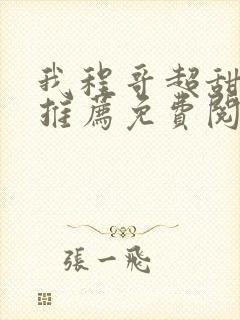 我程哥超甜
推薦免費閱
張一飛